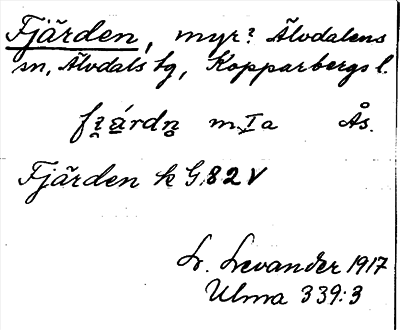 Fjärden, myr? Älvdalens
sn, Älvdals tg, Kopparbergs l.
fi̯ǻ̱rdn̥ m. I a Ås.
Fjärden k G 82 V
L. Levander 1917
Ulma 339:3